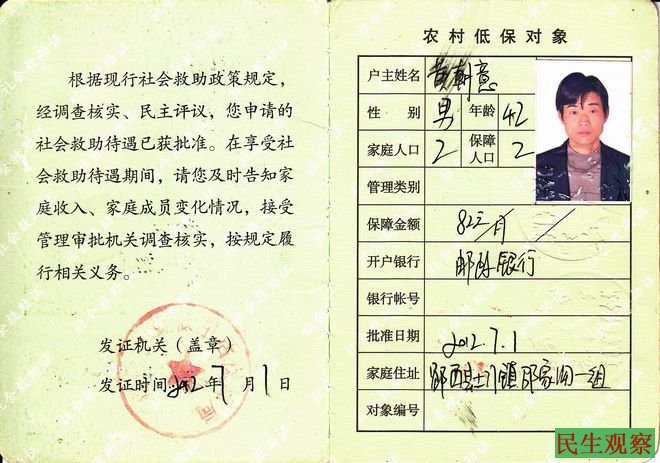 根据现行社会救助政策规定，
经调查核实、民主评议，您申请的
社会救助待遇已获批准。在享受社
会救助待遇期间，请您及时告知家
庭收入、家庭成员变化情况，接受
管理审批机关调查核实，按规定履
行相关义务。
发证机关（盖章）
发证时间:2012年7月1日
农村低保对象
户主姓名 黄朝意
性别 男 年龄 42
家庭人口 2 保障人口 2
管理类别
保障金额 82元/月
开户银行 邮政银行
银行帐号
批准日期 2012.7.1
家庭住址 郧西县土门镇 一组
对象编号
民生观察